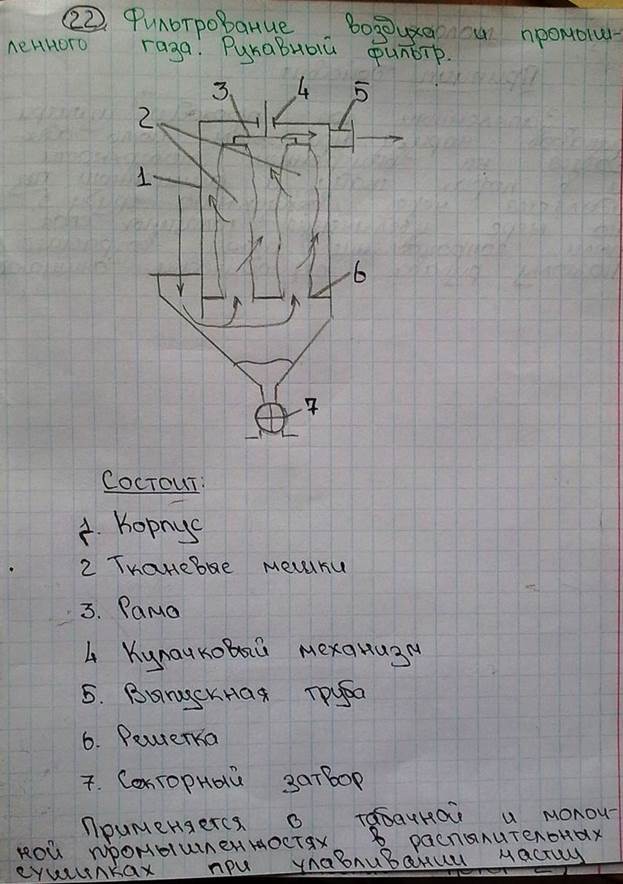 22 Фильтрование воздуха и промыш-
ленного газа. Рукавный фильтр.
3 4 5
2
1
6
7
Состоит:
1. Корпус
2 Тканевые мешки
3. Рама
4 Кулачковый механизм
5. Выпускная труба
6. Решетка
7. Секторный затвор
Применяется в табачной и молоч-
ной промышленностях в распылительных
сушилках при улавливании частиц